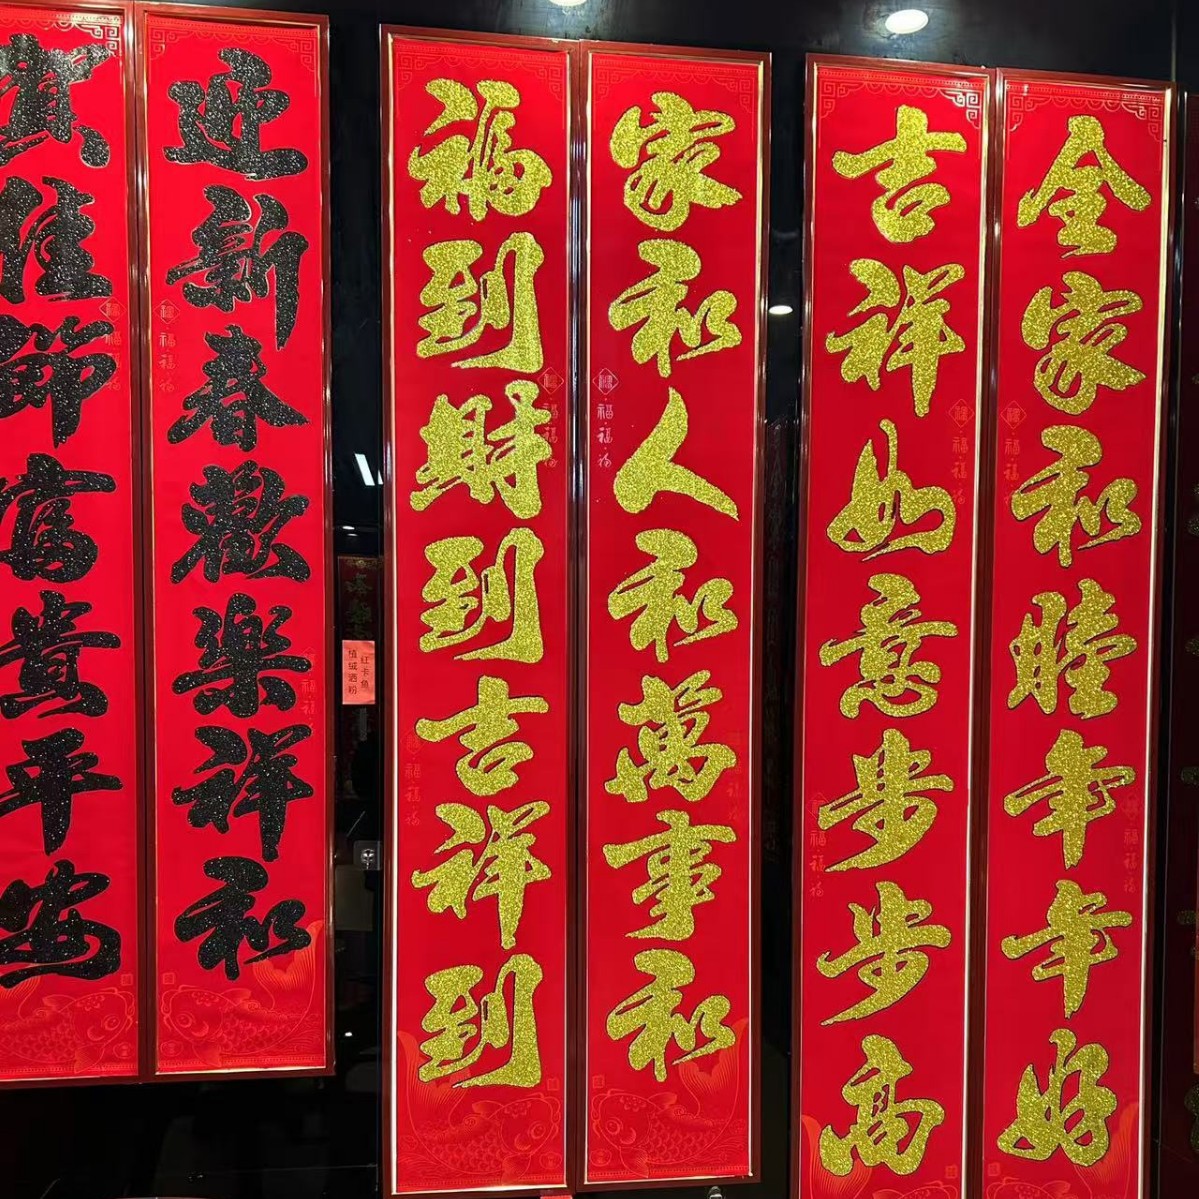 迎新春歡樂祥和
賀佳節富貴平安
家和人和萬事和
福到財到吉祥到
全家和睦年年好
吉祥如意步步高
红卡鱼
植绒洒粉